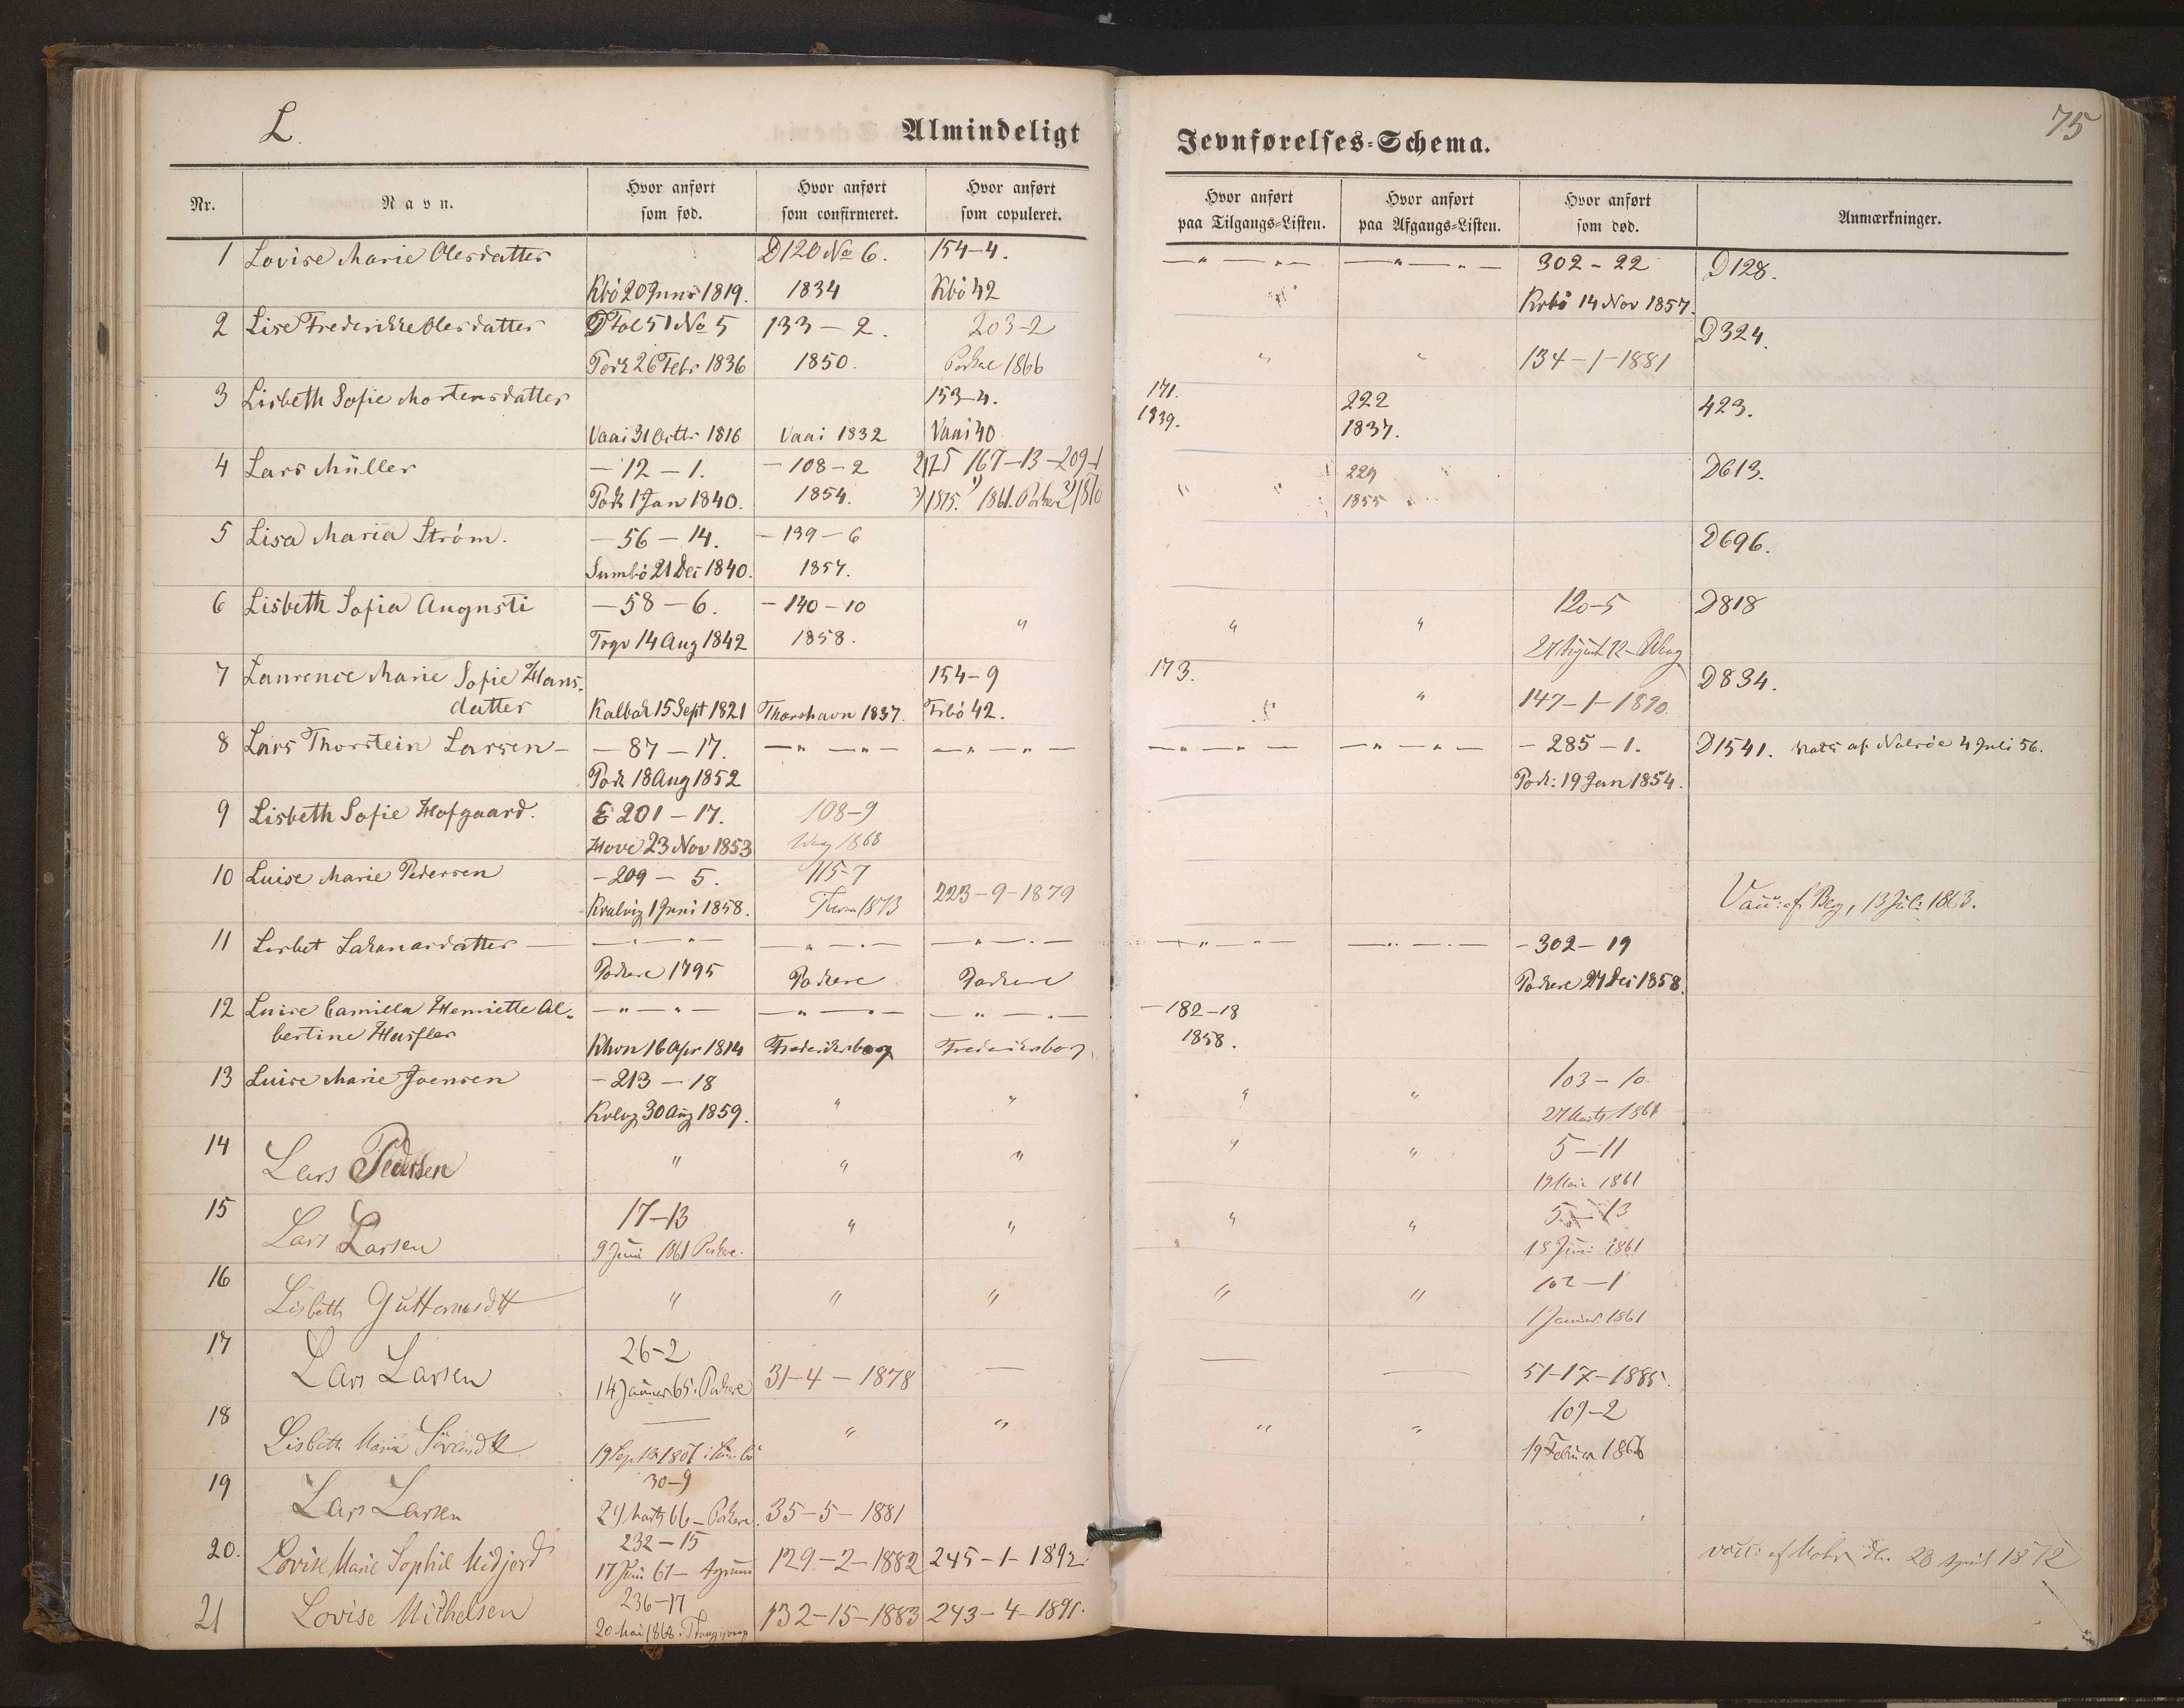 L.
Almindeligt
Jevnførelses-Schema.
75
Nr.
Navn.
Hvor anført
som fød.
Hvor anført
som confirmeret.
Hvor anført
som copuleret.
Hvor anført
paa Tilgangs-Listen.
Hvor anført
paa Afgangs-Listen.
Hvor anført
som død.
Anmærkninger.
1 Lovise Marie Olesdatter D120 No 6. 154-4. —"— "— —"— "— 302-22 D128.
Kbö 20 Juni 1819. 1834 Kbö 42 Kvbö 14 Nov 1857.
2 Lise Frederikke Olesdatter D Fol 51 No 5 133-2. 203-2 D324.
Pork 26 Febr 1836 1850. Porkere 1866 " " 134-1-1881
3 Lisbeth Sofie Mortensdatter 153-4. 171. 222 423.
1839. 1837.
Vaai 31 Octbr 1816 Vaai 1832 Vaai 40
4 Lars Müller -12-1. -108-2 2175 167-13-209-1 229 D613.
Pork 1 Jan 1840. 1854. 3) 1875. 1) 1861. Porkere 2) 1870 " " 1855
5 Lisa Maria Ström. -56-14. -139-6 D696.
Sumbö 21 Dec 1840. 1857.
6 Lisbeth Sofia Augusti -58-6. -140-10 120-5 D818
Trgv 14 Aug 1842 1858. " " " 27 August 72-Waag
7 Laurence Marie Sofie Hans- 154-9 173. D834.
datter Kalbak 15 Sept 1821 Thorshavn 1837. Frbö 42. " 147-1-1890.
8 Lars Thorstein Larsen- -87-17. —"—"— —"—"— —"—"— —"—"— -285-1. D1541. vacc af Nolsöe 4 Juli 56.
Pork 18 Aug 1852 Pork: 19 Jan 1854.
9 Lisbeth Sofie Hofgaard. E 201-17. 108-9
Hove 23 Nov 1853 Waag 1868
10 Luise Marie Pedersen -209-5. 115-7 223-9-1879 Vacc: af Berg, 13 Juli 1863.
Kvalvig 1 Juni 1858. 1873
11 Lisbet Zakariasdatter —"—"— —"—"— —"—"— —"—"— —"—"— -302-19
Porkere 1795 Porkere Porkere Porkere 27 Dec 1858.
12 Luise Camilla Henriette Al- —"—"— —"—"— —"—"— -182-18
bertine Hasfler Khvn 16 Apr 1814 Frederiksborg Frederiksborg. 1858.
13 Luise Marie Joensen -213-18 103-10
Kvlvg 30 Aug 1859. " " " " 27 Marts 1861
14 Lars Pedersen " " " " " 5-11
19 Mai 1861
15 Lars Larsen 17-13 " " " " 5-13
9 Juni 1861 Porkere. 18 Juni 1861
16 Lisbeth Guttormsdtt " " " " " 102-1
1 Januar 1861
17 Lars Larsen 26-2 31-4-1878 — — — 51-17-1885.
14 Januar 65. Porkere
18 Lisbeth Maria — " " " " 109-2
19 Septbr 1801 i Sumbö 19 Februar 1866
19 Lars Larsen 30-9 35-5-1881
29 Marts 66-Porkere.
20. Lovise Marie Sophie Midjord 232-15 129-2-1882 245-1-1892. vacc: af Mohr d. 28 April 1872
17 Juni 67-
21 Lovise Michelsen 236-17 132-15-1883 243-4-1891.
20 Mai 1868.